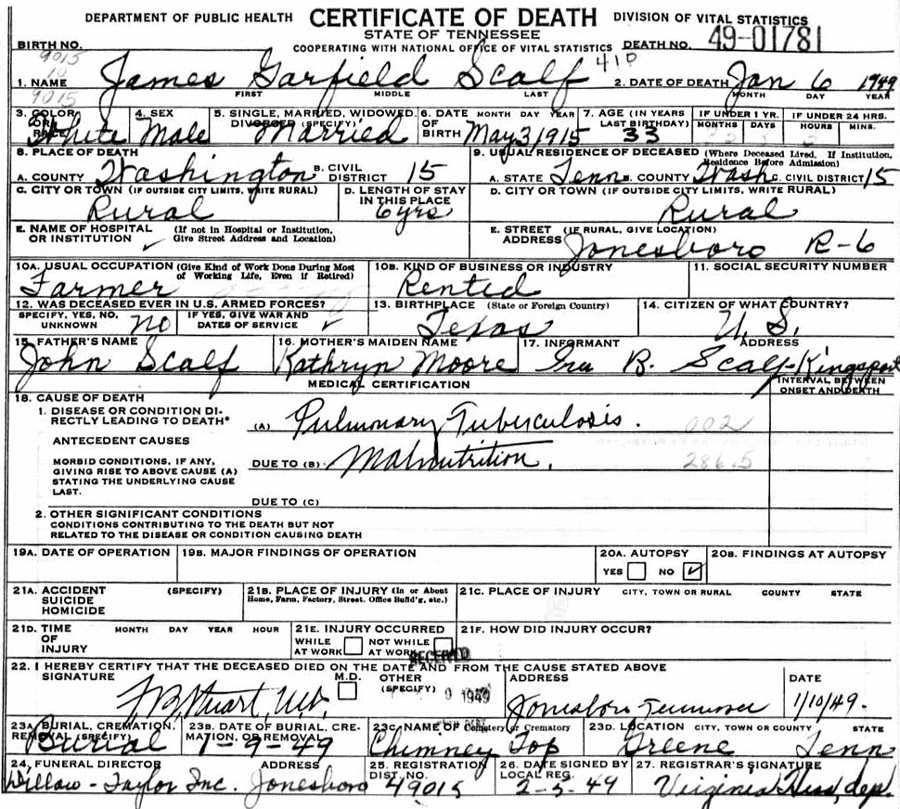 DEPARTMENT OF PUBLIC HEALTH CERTIFICATE OF DEATH DIVISION OF VITAL STATISTICS
STATE OF TENNESSEE
COOPERATING WITH NATIONAL OFFICE OF VITAL STATISTICS
BIRTH NO. DEATH NO. 49-01781
9015
10 410
1. NAME James Garfield Scalf 2. DATE OF DEATH Jan 6 1949
9015 FIRST MIDDLE LAST MONTH DAY YEAR
3. COLOR OR RACE White 4. SEX Male 5. SINGLE, MARRIED, WIDOWED, DIVORCED (SPECIFY) Married 6. DATE OF BIRTH MONTH DAY YEAR May 3, 1915 7. AGE (IN YEARS LAST BIRTHDAY) 33 IF UNDER 1 YR. MONTHS DAYS IF UNDER 24 HRS. HOURS MINS.
8. PLACE OF DEATH 9. USUAL RESIDENCE OF DECEASED (Where Deceased Lived, If Institution, Residence Before Admission)
A. COUNTY Washington B. CIVIL DISTRICT 15 A. STATE Tenn B. COUNTY Wash C. CIVIL DISTRICT 15
C. CITY OR TOWN (IF OUTSIDE CITY LIMITS, WRITE RURAL) Rural D. LENGTH OF STAY IN THIS PLACE 6 yrs D. CITY OR TOWN (IF OUTSIDE CITY LIMITS, WRITE RURAL) Rural
E. NAME OF HOSPITAL OR INSTITUTION (If not in Hospital or Institution, Give Street Address and Location) ✓ E. STREET ADDRESS (IF RURAL, GIVE LOCATION) Jonesboro R-6
10A. USUAL OCCUPATION (Give Kind of Work Done During Most of Working Life, Even if Retired) Farmer 10B. KIND OF BUSINESS OR INDUSTRY Rented 11. SOCIAL SECURITY NUMBER
12. WAS DECEASED EVER IN U.S. ARMED FORCES? SPECIFY, YES, NO, UNKNOWN no IF YES, GIVE WAR AND DATES OF SERVICE ✓ 13. BIRTHPLACE (State or Foreign Country) Texas 14. CITIZEN OF WHAT COUNTRY? U.S.
15. FATHER'S NAME John Scalf 16. MOTHER'S MAIDEN NAME Kathryn Moore 17. INFORMANT ADDRESS Ira B. Scalf-Kingsport
MEDICAL CERTIFICATION INTERVAL BETWEEN ONSET AND DEATH
18. CAUSE OF DEATH
1. DISEASE OR CONDITION DIRECTLY LEADING TO DEATH* (A) Pulmonary Tuberculosis. 002
ANTECEDENT CAUSES
MORBID CONDITIONS, IF ANY, GIVING RISE TO ABOVE CAUSE (A) STATING THE UNDERLYING CAUSE LAST. DUE TO (B) Malnutrition. 286.5
DUE TO (C)
2. OTHER SIGNIFICANT CONDITIONS
CONDITIONS CONTRIBUTING TO THE DEATH BUT NOT
RELATED TO THE DISEASE OR CONDITION CAUSING DEATH
19A. DATE OF OPERATION 19B. MAJOR FINDINGS OF OPERATION 20A. AUTOPSY YES NO ✓ 20B. FINDINGS AT AUTOPSY
21A. ACCIDENT SUICIDE HOMICIDE (SPECIFY) 21B. PLACE OF INJURY (In or About Home, Farm, Factory, Street, Office Build'g, etc.) 21C. PLACE OF INJURY CITY, TOWN OR RURAL COUNTY STATE
21D. TIME OF INJURY MONTH DAY YEAR HOUR 21E. INJURY OCCURRED WHILE AT WORK NOT WHILE AT WORK 21F. HOW DID INJURY OCCUR?
RECEIVED
22. I HEREBY CERTIFY THAT THE DECEASED DIED ON THE DATE AND FROM THE CAUSE STATED ABOVE
SIGNATURE M.D. OTHER (SPECIFY) ADDRESS DATE
Stuart, M.D. 9 1949 Jonesboro Tennessee 1/10/49.
23A. BURIAL, CREMATION, REMOVAL (SPECIFY) Burial 23B. DATE OF BURIAL, CREMATION, OR REMOVAL 1-9-49 23C. NAME OF Cemetery or Crematory Chimney Top 23D. LOCATION CITY, TOWN OR COUNTY STATE Greene Tenn
24. FUNERAL DIRECTOR ADDRESS Dillow-Taylor Inc. Jonesboro 25. REGISTRATION DIST. NO. 49015 26. DATE SIGNED BY LOCAL REG. 2-5-49 27. REGISTRAR'S SIGNATURE Virginia dep.